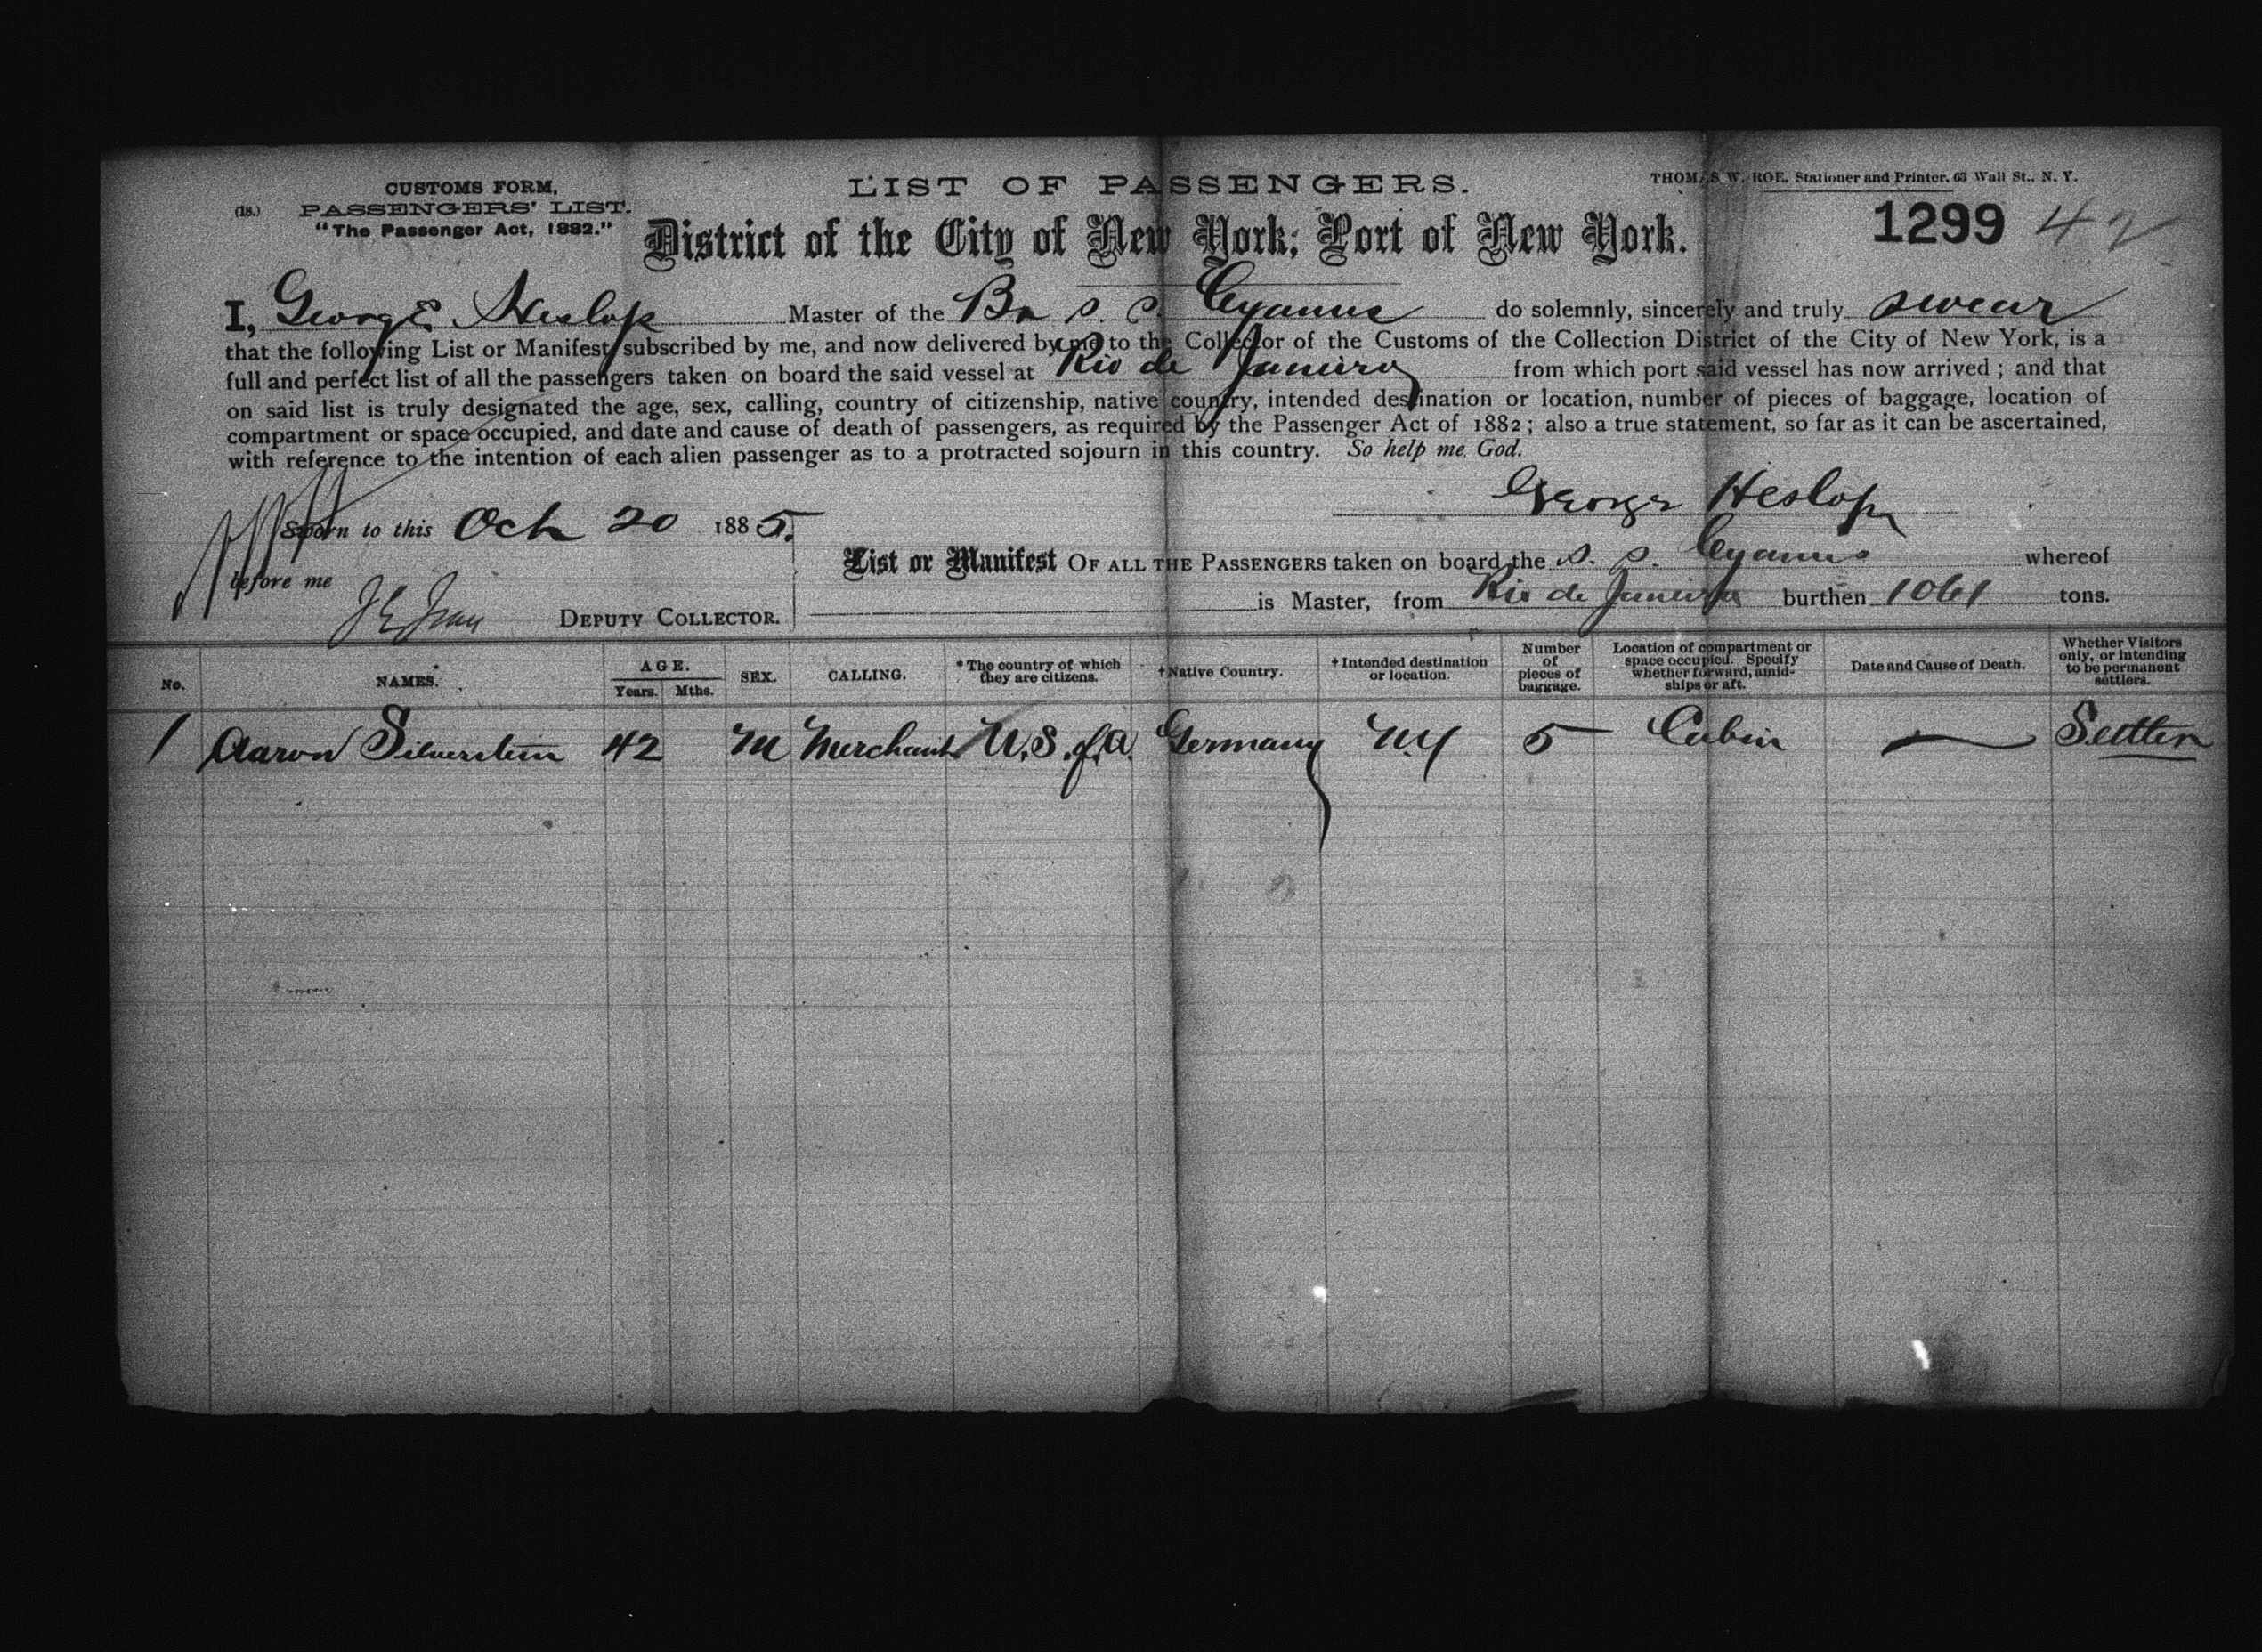 CUSTOMS FORM,
(18.) PASSENGERS' LIST.
"The Passenger Act, 1882."
LIST OF PASSENGERS.
THOMAS W. ROE. Stationer and Printer. 63 Wall St., N. Y.
District of the City of New York; Port of New York.
1299 42
I, George Heslop Master of the Br s. s. Cyanus do solemnly, sincerely and truly swear
that the following List or Manifest, subscribed by me, and now delivered by me to the Collector of the Customs of the Collection District of the City of New York, is a
full and perfect list of all the passengers taken on board the said vessel at Rio de Janeiro from which port said vessel has now arrived; and that
on said list is truly designated the age, sex, calling, country of citizenship, native country, intended destination or location, number of pieces of baggage, location of
compartment or space occupied, and date and cause of death of passengers, as required by the Passenger Act of 1882; also a true statement, so far as it can be ascertained,
with reference to the intention of each alien passenger as to a protracted sojourn in this country. So help me God.
George Heslop
Sworn to this Oct 20 1885.
before me
DEPUTY COLLECTOR.
List or Manifest OF ALL THE PASSENGERS taken on board the s. s. Cyanus whereof
is Master, from Rio de Janeiro burthen 1061 tons.
No. NAMES. AGE. Years. Mths. SEX. CALLING. *The country of which they are citizens. †Native Country. †Intended destination or location. Number of pieces of baggage. Location of compartment or space occupied. Specify whether forward, amidships or aft. Date and Cause of Death. Whether Visitors only, or intending to be permanent settlers.
1 Aaron Silverstein 42 M Merchant U.S. of A. Germany N.Y 5 Cabin — Settler